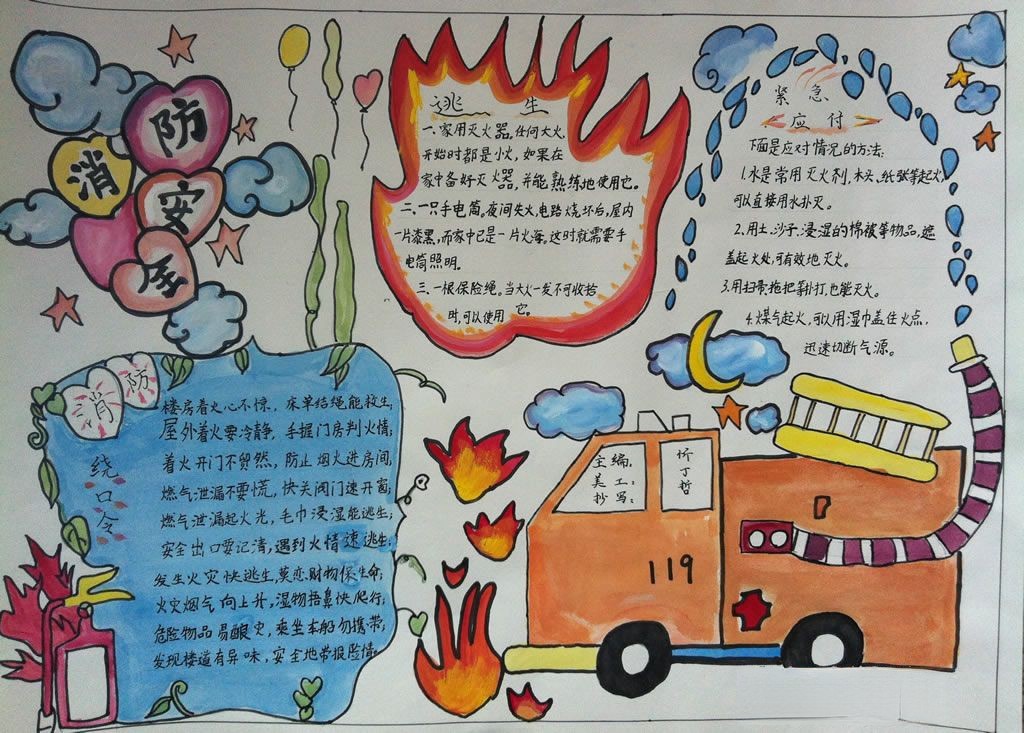 消防安全
逃生
一、家用灭火器。任何大火,
开始时都是小火,如果在
家中备好灭火器,并能熟练地使用它。
二、一只手电筒。夜间失火,电路烧坏后,屋内
一片漆黑,而家中已是一片火海,这时就需要手
电筒照明。
三、一根保险绳。当大火一发不可收拾
时,可以使用它。
紧急
应付
下面是应对情况的方法:
1.水是常用灭火剂,木头、纸张等起火,
可以直接用水扑灭。
2.用土、沙子、浸湿的棉被等物品,遮
盖起火处,可有效地灭火。
3.用扫帚,拖把等扑打,也能灭火。
4.煤气起火,可以用湿巾盖住火点,
迅速切断气源。
消防
绕口令
楼房着火心不惊,床单结绳能救生;
屋外着火要冷静,手握门房判火情;
着火开门不贸然,防止烟火进房间,
燃气泄漏不要慌,快关阀门速开窗;
燃气泄漏起火光,毛巾浸湿能逃生;
安全出口要记清,遇到火情速逃生;
发生火灾快逃生,莫恋财物保生命;
火灾烟气向上升,湿物捂鼻快爬行;
危险物品易酿灾,乘坐车船勿携带;
发现楼道有异味,安全地带报险情。
主编:
美工:
抄写:
丁哲
119